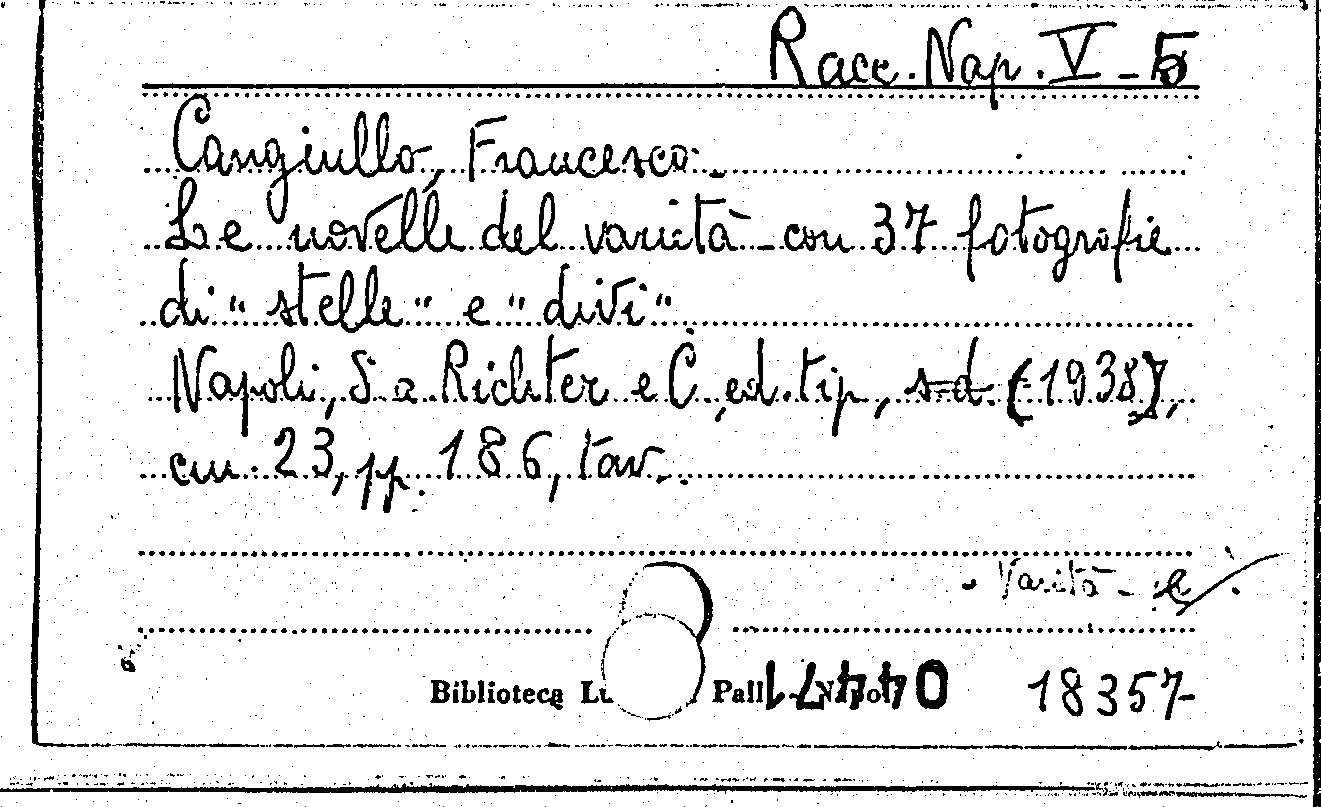 Racc. Nap. V - 5
Cangiullo, Francesco.
Le novelle del varietà - con 37 fotografie
di "stelle" e "divi"
Napoli, S a Richter e C, ed. tip, s.d. (1938),
cm. 23, pp. 186, tav.
Varietà -
Biblioteca Lu Pall - Napoli
044471
18357